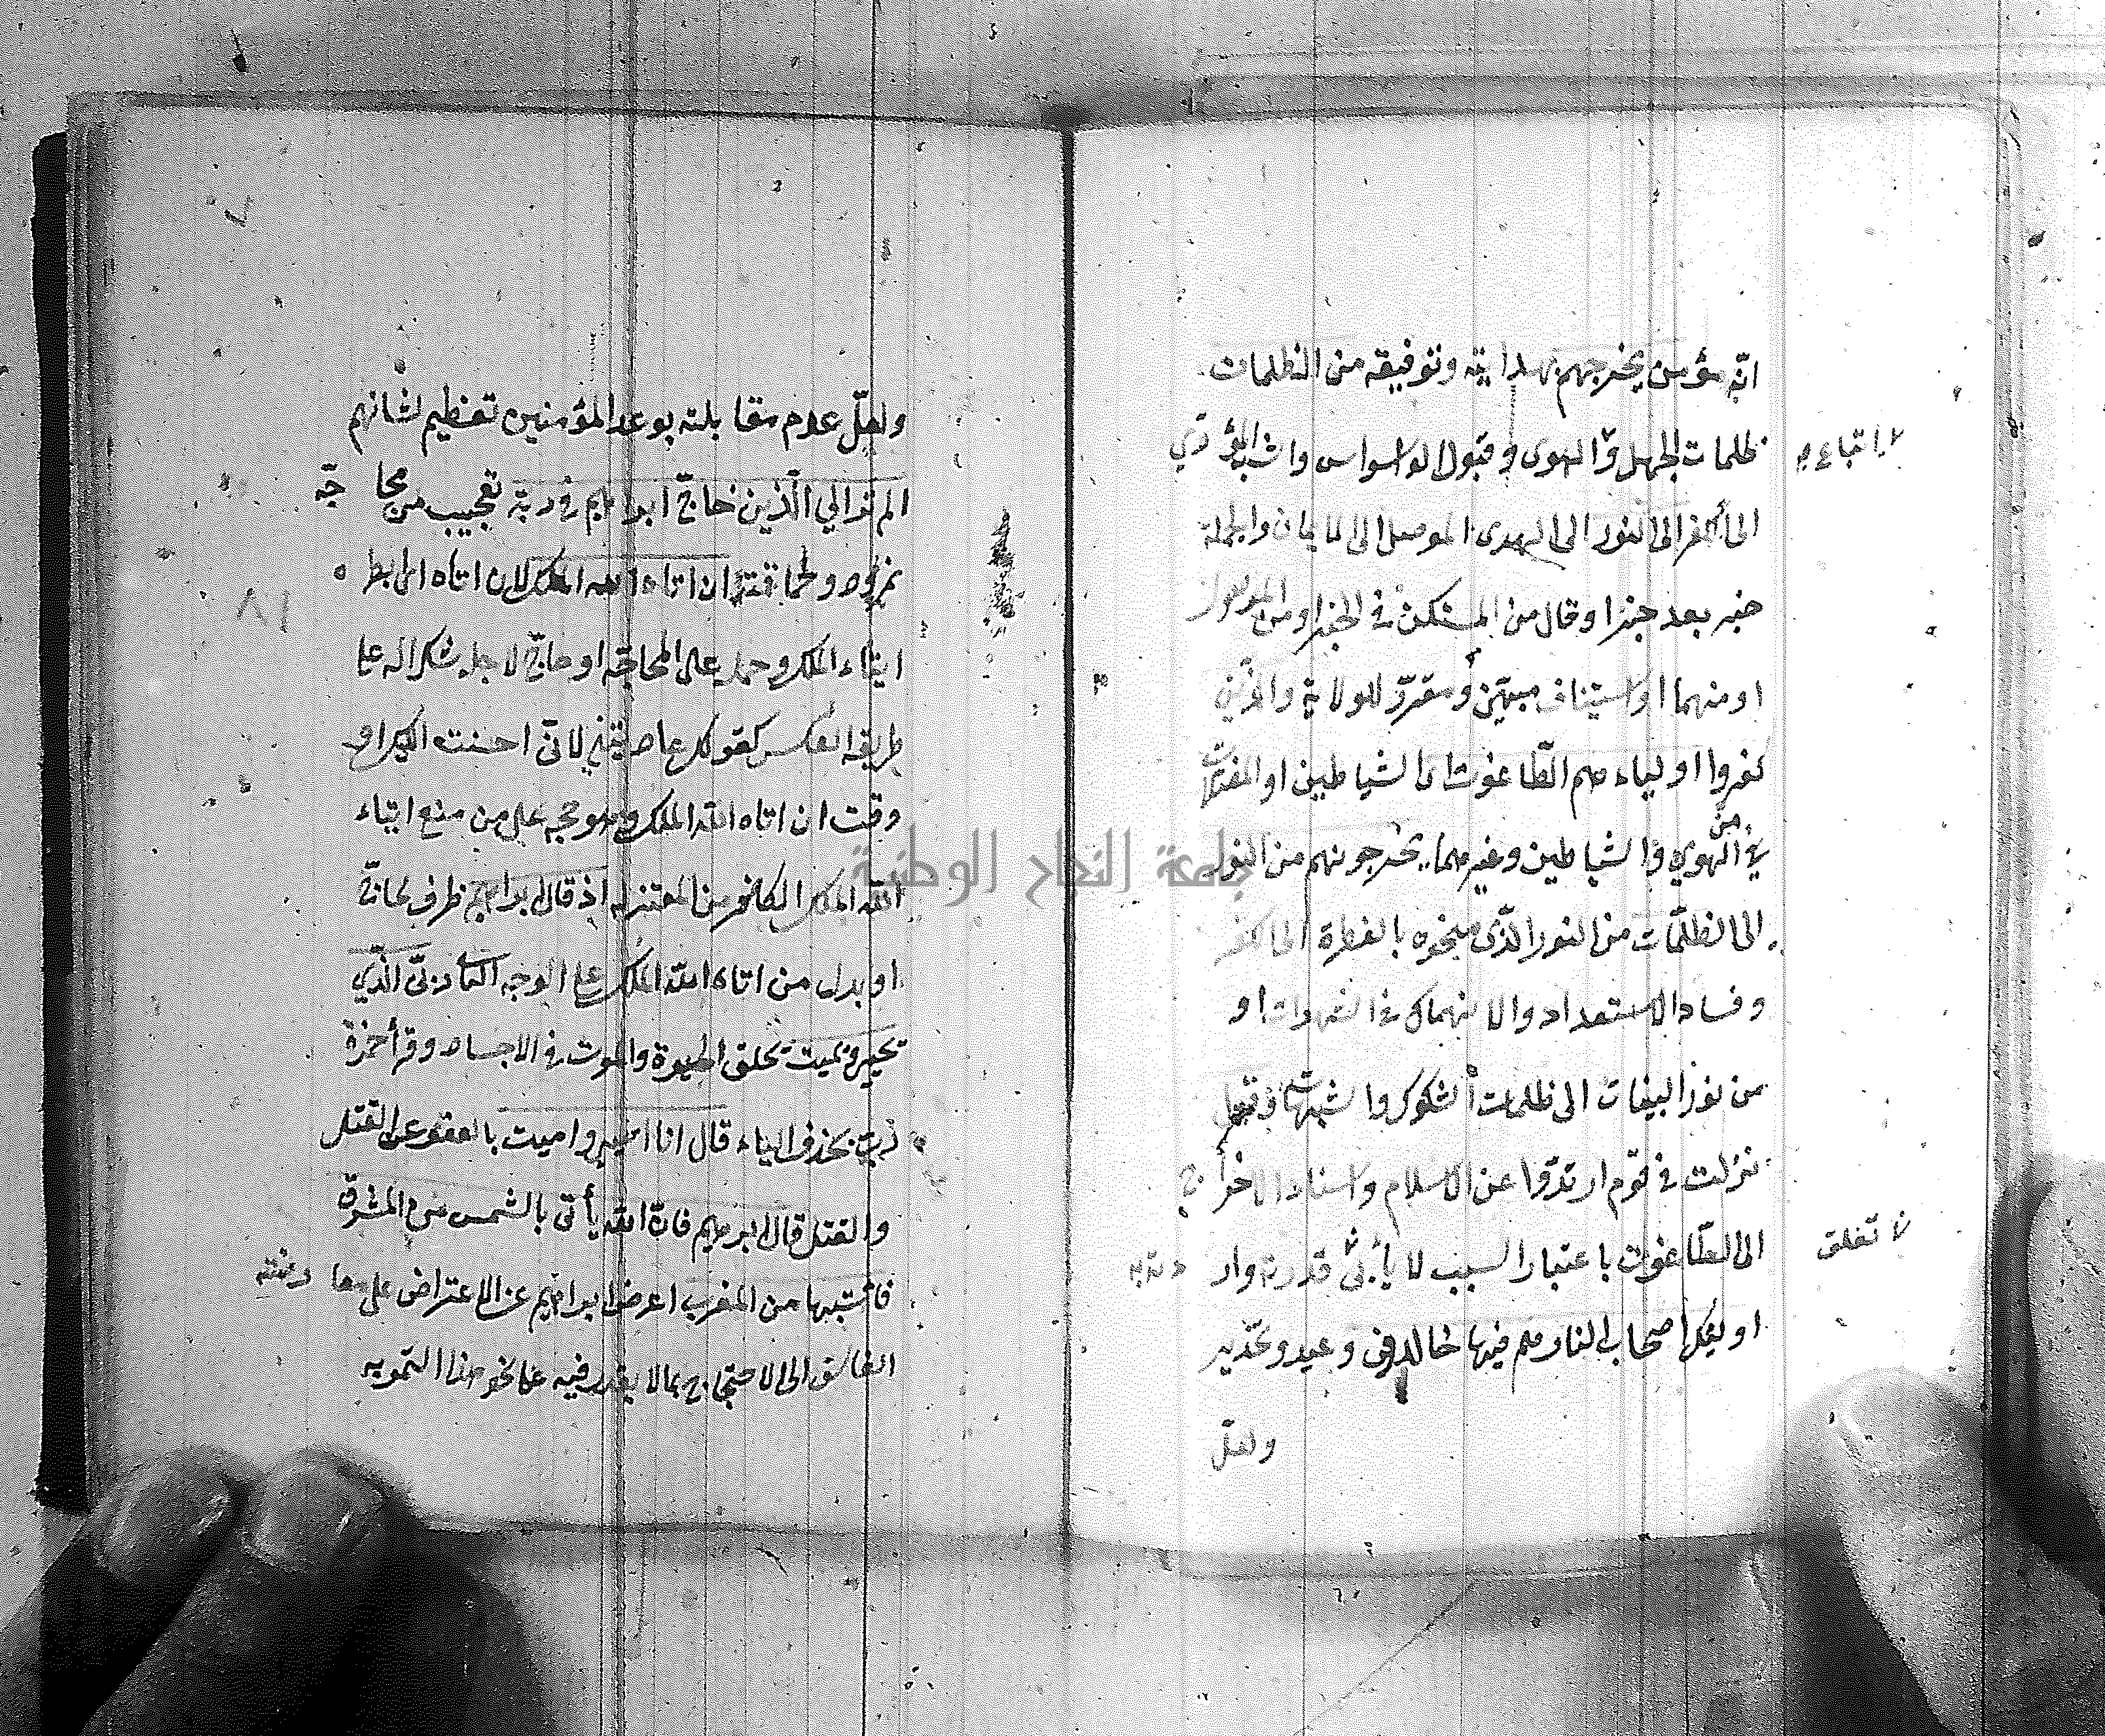 انه مؤمن يخرجهم بهدايته وتوفيقه من الظلمات
ظلمات الجهل واتباع الهوى وقبول الوساوس والشبه المؤدي
الى الكفر الى النور الى الهدى الموصل الى الايمان والجملة
خبر بعد خبر او حال من المستكن في الخبر او من الموصول
او منهما او استيناف مبين ومقرر للولاية والذين
كفروا اولياءهم الطاغوت اى الشياطين او المضلات
من الهوى والشياطين وغيرهما يخرجونهم من النور
الى الظلمات من النور الذى منحوه بالفطرة الى الكفر
وفساد الاستعداد والانهماك في الشهوات او
من نور البينات الى ظلمات الشكوك والشبهات وقيل
نزلت في قوم ارتدوا عن الاسلام واسناد الاخراج
الى الطاغوت باعتبار السبب لا يأبى تعلق قدرته وارادته به
اولئك اصحاب النار هم فيها خالدون وعيد وتحذير
ولعل
ولعل عدم مقابلته بوعد المؤمنين تعظيم لشانهم
الم تر الي الذين حاج ابراهيم في ربه تعجيب من محاجة
نمرود وحماقته ان اتاه الله الملك لان اتاه اى ابطره
ايتاء الملك وحمله على المحاجة او حاج لاجله شكرا له على
طريقة العكس كقولك عاديتني لانى احسنت اليك او
وقت ان اتاه الله الملك وهو حجة على من منع ايتاء
الله الملك الكافر من المعتزلة اذ قال ابراهيم ظرف لحاج
او بدل من اتاه الله الملك على الوجه الثاني ربى الذي
يحيي ويميت بخلق الحيوة والموت في الاجساد وقرأ حمزة
رب بحذف الياء قال انا احيي واميت بالعفو عن القتل
والقتل قال ابراهيم فان الله يأتى بالشمس من المشرق
فأت بها من المغرب اعرض ابراهيم عن الاعتراض على معارضته
الى الاحتجاج بما لا يقدر فيه على نحو هذا التمويه
٨١
جامعة النجاح الوطنية